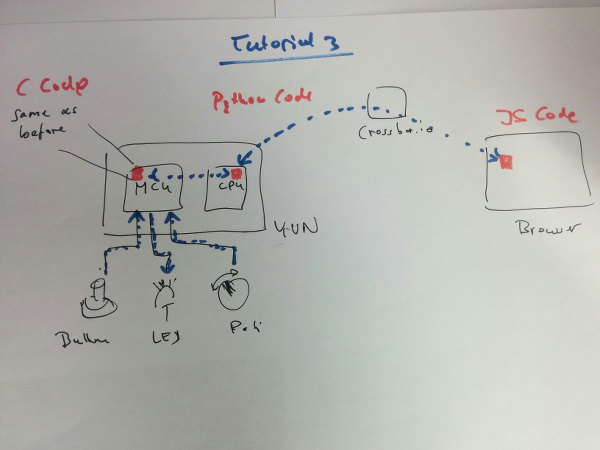 Tutorial 3
C Code
same as
before
Python Code
Crossbar.io
JS Code
MCU
CPU
YUN
Browser
Button
LED
Poti